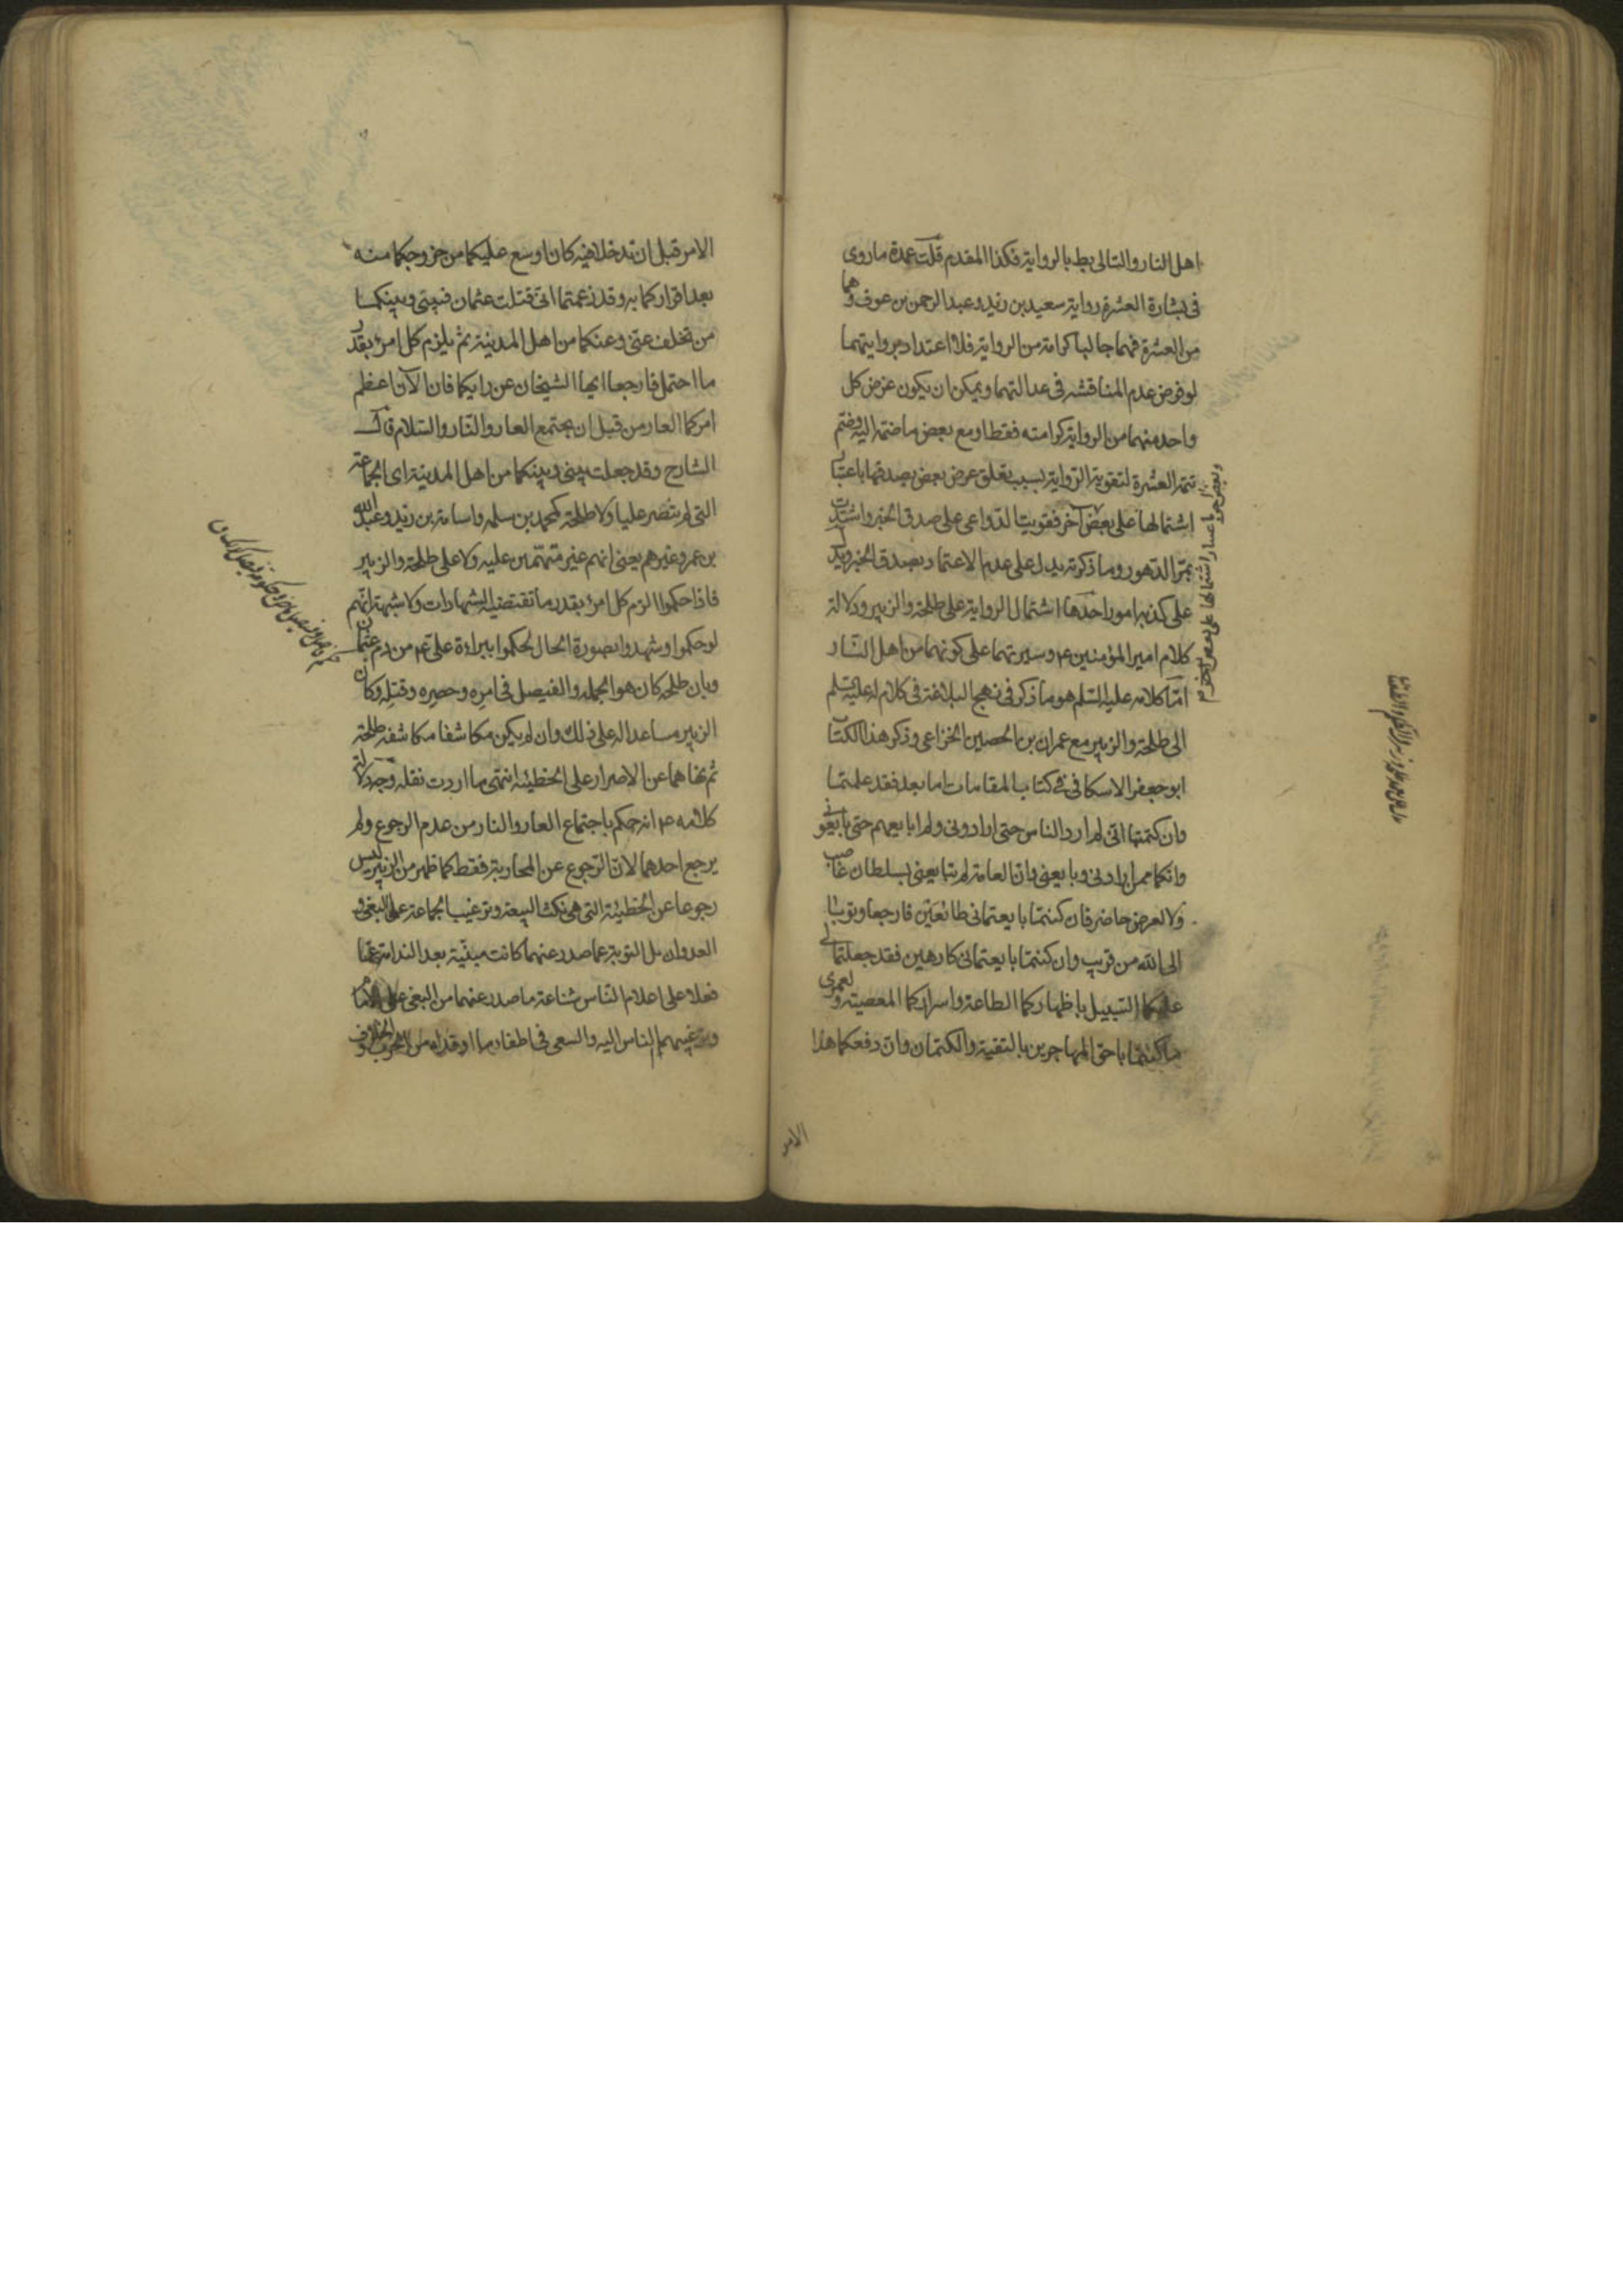 اهل النار والتالي بط بالرواية فكذا المقدم قلت عمدة ما روى
في بشارة العشرة رواية سعيد بن زيد وعبد الرحمن بن عوف وهما
من العشرة فهما جالبا كرامة من الرواية فلا اعتداد بروايتهما
لو فرض عدم المناقشة في عدالتهما ويمكن ان يكون غرض كل
واحد منهما من الرواية كرامته فقط او مع بعض ما ضمه اليه وضم
تتمة العشرة لتقوية الرواية بسبب تعلق غرض بعض بصدقها باعتبار
اشتمالها على بعض آخر فقويت الدواعى على صدق الخبر واشتدت
بمر الدهور وما ذكرته يدل على عدم الاعتماد بصدق الخبر ويدل
على كذبه امور احدها اشتمال الرواية على طلحة والزبير ودلالة
كلام امير المؤمنين ع وسيرتهما على كونهما من اهل النار
اما كلامه عليه السلم هو ما ذكر في نهج البلاغة في كلام له عليه السلم
الى طلحة والزبير مع عمران بن الحصين الخزاعى وذكر هذا الكتاب
ابو جعفر الاسكافى في كتاب المقامات اما بعد فقد علمتما
وان كتمتما انى لم ارد الناس حتى ارادونى ولم ابايعهم حتى بايعونى
وانكما ممن ارادنى وبايعنى وان العامة لم تبايعنى لسلطان غاصب
ولا لعرض حاضر فان كنتما بايعتمانى طائعين فارجعا وتوبا
الى الله من قريب وان كنتما بايعتمانى كارهين فقد جعلتما لى
عليكما السبيل باظهاركما الطاعة واسراركما المعصية ولعمرى
ما كنتما باحق المهاجرين بالتقية والكتمان وان دفعكما هذا
الامر
باعتبار اشتمالها على بعض آخر
الامر قبل ان تدخلا فيه كان اوسع عليكما من خروجكما منه
بعد اقراركما به وقد زعمتما انى قتلت عثمان فبينى وبينكما
من تخلف عنى وعنكما من اهل المدينة ثم يلزم كل امرء بقدر
ما احتمل فارجعا ايها الشيخان عن رايكما فان الآن اعظم
امركما العار من قبل ان يجتمع العار والنار والسلام قال
الشارح وقد جعلت بينى وبينكما من اهل المدينة اى الجماعة
التى لم تنصر عليا ولا طلحة كمحمد بن سلمه واسامة بن زيد وعبد الله
بن عمر وغيرهم يعنى انهم غير متهمين عليه ولا على طلحة والزبير
فاذا حكموا لزم كل امرء بقدر ما تقتضيه الشهادات ولا شبهة انهم
لو حكموا وشهدوا بصورة الحال لحكموا ببراءة على ع من دم عثمان
وبان طلحه كان هو الجمله والفيصل في امره وحصره وقتله وكان
الزبير مساعدا له على ذلك وان لم يكن مكاشفا مكاشفة طلحة
ثم نهاهما عن الاصرار على الخطيئه انتهى ما اردت نقله وجه دلالة
كلامه ع انه حكم باجتماع العار والنار من عدم الرجوع ولم
يرجع احدهما لان الرجوع عن المحاربة فقط كما ظهر من الزبير ليس
رجوعا عن الخطيئة التى هى نكث البيعة وترغيب الجماعة على البغى و
العدوان بل التوبة عما صدر عنهما كانت مبنية بعد الندامة عنها
فعلا على اعلام الناس شناعة ما صدر عنهما من البغى على الامام
وترغيبهم الناس اليه والسعى في اطفاء ما اوقداه من الحرب